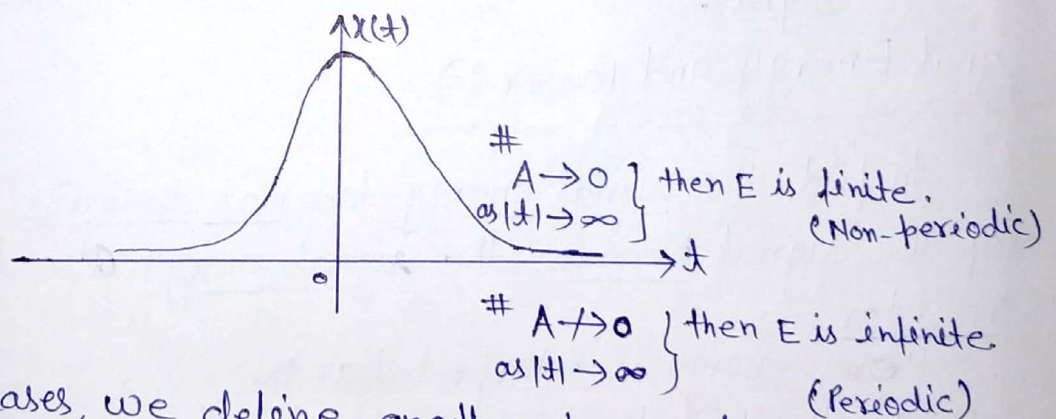 x(t)
#
A→0 } then E is finite.
as |t|→∞ (Non-periodic)
t
0
# A↛0 } then E is infinite.
as |t|→∞ (Periodic)
ases, we define